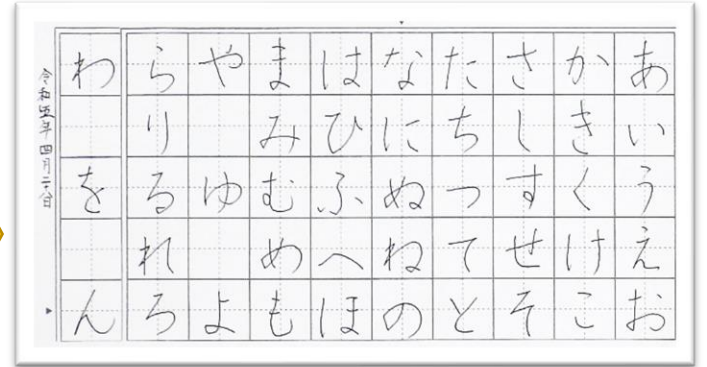 あいうえお
かきくけこ
さしすせそ
たちつてと
なにぬねの
はひふへほ
まみむめも
やゆよ
らりるれろ
わをん
令和五年四月二十日